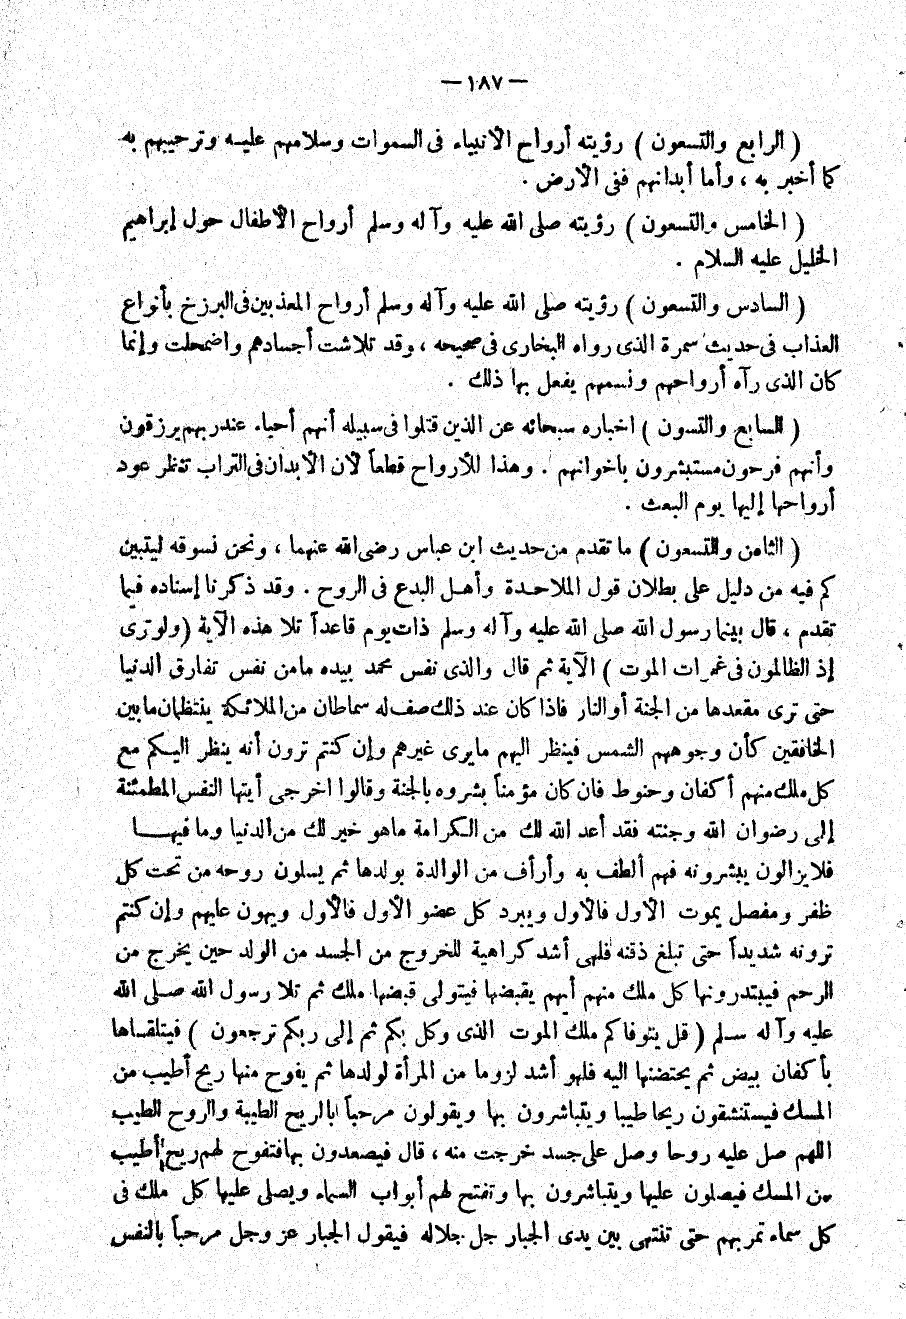 —١٨٧—
( الرابع والتسعون ) رؤيته أرواح الأنبياء فى السموات وسلامهم عليه وترحيبهم به
كما أخبر به ، وأما أبدانهم ففى الأرض .
( الخامس والتسعون ) رؤيته صلى الله عليه وآله وسلم أرواح الأطفال حول إبراهيم
الخليل عليه السلام .
( السادس والتسعون ) رؤيته صلى الله عليه وآله وسلم أرواح المعذبين فى البرزخ بأنواع
العذاب فى حديث سمرة الذى رواه البخارى فى صحيحه ، وقد تلاشت أجسادهم واضمحلت وإنما
كان الذى رآه أرواحهم ونسمهم يفعل بها ذلك .
( السابع والتسون ) اخباره سبحانه عن الذين قتلوا فى سبيله أنهم أحياء عند ربهم يرزقون
وأنهم فرحون مستبشرون باخوانهم . وهذا للأرواح قطعاً لأن الأبدان فى التراب تنتظر عود
أرواحها إليها يوم البعث .
( الثامن والتسعون ) ما تقدم من حديث ابن عباس رضى الله عنهما ، ونحن نسوقه ليتبين
كم فيه من دليل على بطلان قول الملاحدة وأهل البدع فى الروح . وقد ذكرنا إسناده فيما
تقدم ، قال بينما رسول الله صلى الله عليه وآله وسلم ذات يوم قاعداً تلا هذه الآية (ولو ترى
إذ الظالمون فى غمرات الموت ) الآية ثم قال والذى نفس محمد بيده مامن نفس تفارق الدنيا
حتى ترى مقعدها من الجنة أو النار فاذا كان عند ذلك صف له سماطان من الملائكة ينتظمان مابين
الخافقين كأن وجوههم الشمس فينظر اليهم مايرى غيرهم وإن كنتم ترون أنه ينظر اليكم مع
كل ملك منهم أكفان وحنوط فان كان مؤمناً بشروه بالجنة وقالوا اخرجى أيتها النفس المطمئنة
إلى رضوان الله وجنته فقد أعد الله لك من الكرامة ماهو خير لك من الدنيا وما فيها
فلا يزالون يبشرونه فهم ألطف به وأرأف من الوالدة بولدها ثم يسلون روحه من تحت كل
ظفر ومفصل يموت الأول فالأول ويبرد كل عضو الأول فالأول ويهون عليهم وإن كنتم
ترونه شديداً حتى تبلغ ذقنه فلهى أشد كراهية للخروج من الجسد من الولد حين يخرج من
الرحم فيبتدرونها كل ملك منهم أيهم يقبضها فيتولى قبضها ملك ثم تلا رسول الله صلى الله
عليه وآله سلم ( قل يتوفاكم ملك الموت الذى وكل بكم ثم إلى ربكم ترجعون ) فيتلقاها
بأكفان بيض ثم يحتضنها اليه فلهو أشد لزوما من المرأة لولدها ثم يفوح منها ريح أطيب من
المسك فيستنشقون ريحا طيبا ويتباشرون بها ويقولون مرحباً بالريح الطيبة والروح الطيب
اللهم صل عليه روحا وصل على جسد خرجت منه ، قال فيصعدون بها فتفوح لهم ريح أطيب
من المسك فيصلون عليها ويتباشرون بها وتفتح لهم أبواب السماء ويصلى عليها كل ملك فى
كل سماء تمر بهم حتى تنتهى بين يدى الجبار جل جلاله فيقول الجبار عز وجل مرحباً بالنفس